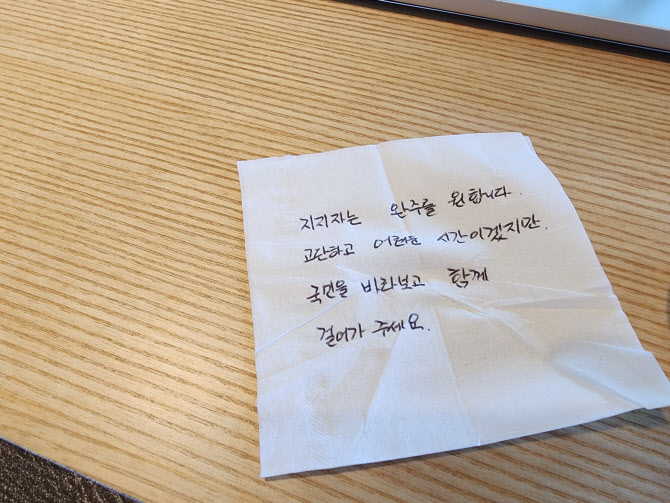 지지자는 완주를 원합니다.
고단하고 어려운 시간이겠지만.
국민을 바라보고 함께
걸어가 주세요.